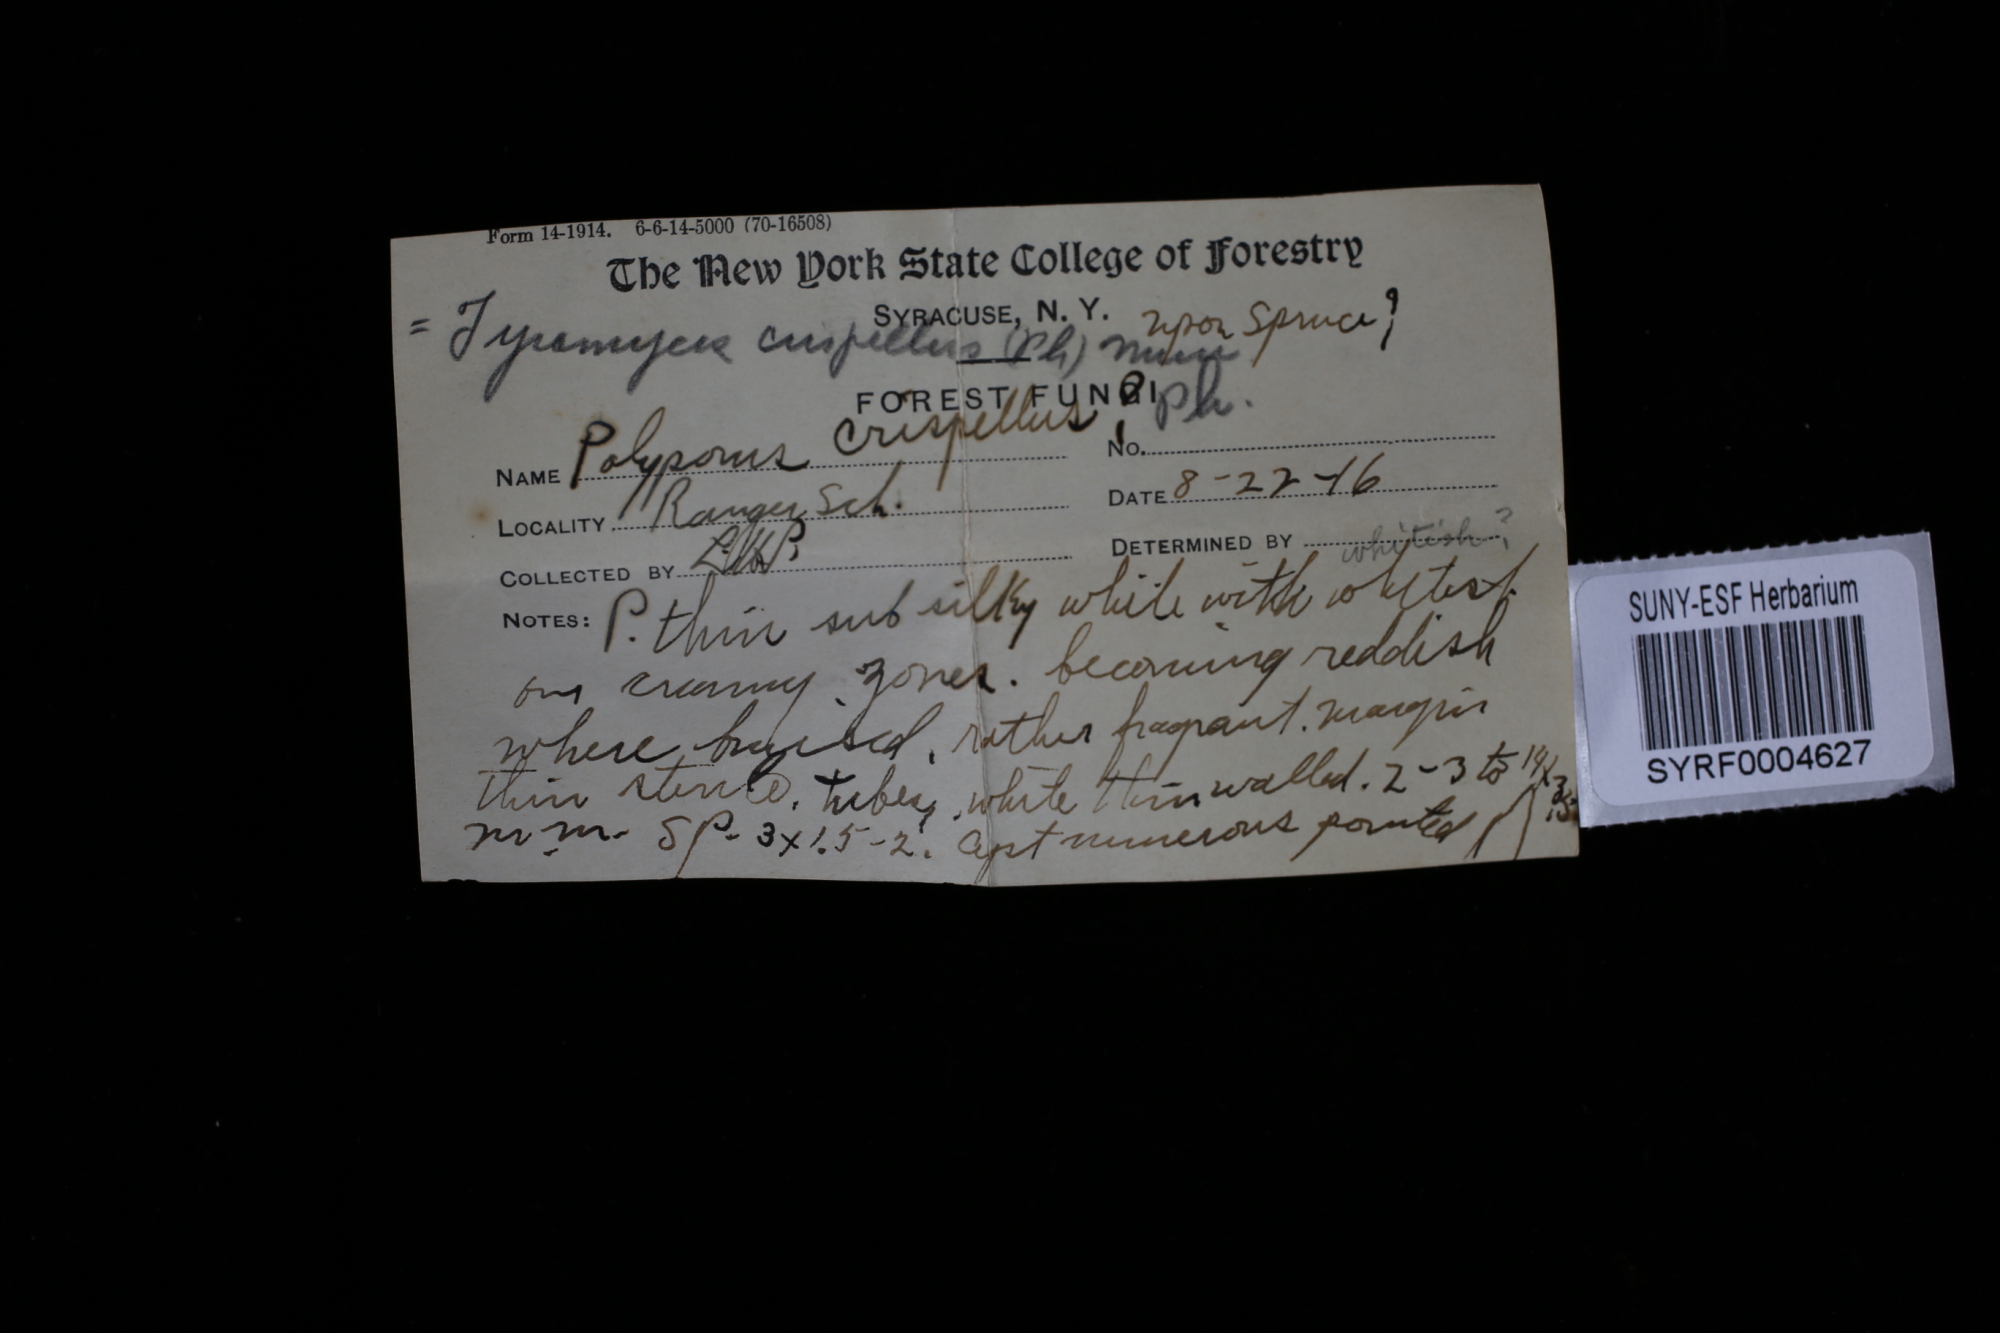 Form 14-1914. 6-6-14-5000 (70-16508)
The New York State College of Forestry
SYRACUSE, N. Y.
upon Spruce?
= Tyromyces crispellus (Pk) Murr
FOREST FUNGI
NAME Polyporus crispellus? Pk.
No.
LOCALITY Ranger Sch.
DATE 8-22-16
COLLECTED BY LHP.
DETERMINED BY
whitish?
NOTES: P. thin sub silky white with
creamy zones. becoming reddish
where bruised, rather fragrant. margin
thin sterile. tubes, white thin walled. 2-3 to
m.m. Sp. 3x1.5-2. cyst numerous pointed
SUNY-ESF Herbarium
SYRF0004627